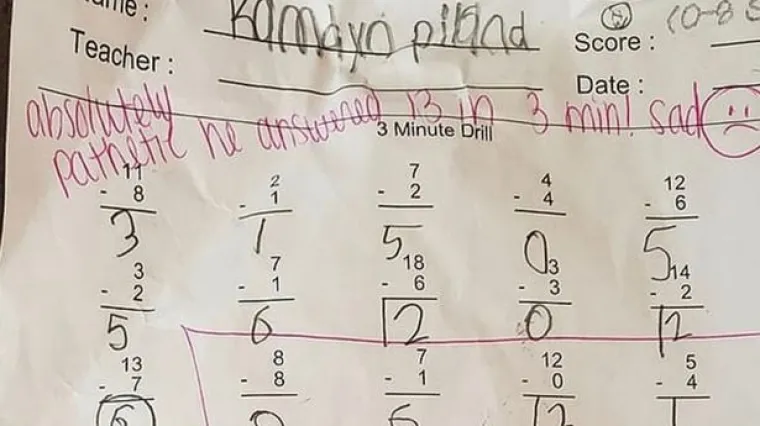 ame :
Kamdyn piland
Score :
10-8
Teacher :
Date :
absolutely
pathetic he answered 13 in 3 min! sad
3 Minute Drill
11 2 7 4 12
- 8 - 1 - 2 - 4 - 6
3 1 5 0 5
3 7 18 3 14
- 2 - 1 - 6 - 3 - 2
5 6 12 0 12
13 8 7 12 5
- 7 - 8 - 1 - 0 - 4
6 0 6 12 1